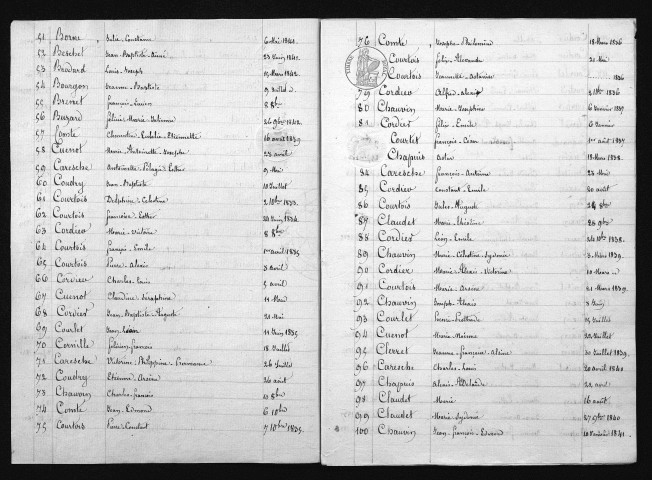 51 Borne Julie-Constance 6 Mai 1842.
52 Beschet Jean-Baptiste-Aimé 23 Juin 1842.
53 Brodard Louis-Joseph 15 Mars 1842.
54 Bourgon Jeanne-Baptiste 9 Juillet d
55 Brenet François-Lucien 8 8bre
56 Bugard Félicie-Marie-Julienne 26 9bre 1842.
57 Comte Clementine-Emélie-Etiennette 16 avril
58 Cuenot Marie-Antoinette-Josephe 23 avril
59 Caresche Antoinette-Pélagie-Esther 9 Mai
60 Coudry Jean-Baptiste 10 Juillet
61 Courtois Delphine-Celestine 2 10bre 1833.
62 Courtois Francoise-Esther 20 Juin 1834.
63 Cordier Marie-Victoire 8 8bre
64 Courtois François-Emile 1er avril 1835
65 Courtois Pierre-Alexis 3 avril
66 Cordier Charles-Louis 5 avril
67 Cuenot Claudine-Seraphine 11 Mai
68 Cordier Jean-Baptiste-Auguste 21 Mai
69 Courlet Jean-Léon 11 Juin 1835
70 Cornille Félicien-François 18 Juillet
71 Caresche Victorine-Philippine-Germaine 26 Juillet
72 Coudry Etienne-Arsène 26 août
73 Chauvin Charles-Francois 10 8bre
74 Comte Jean-Edmond 6 10bre
75 Courtois Pierre-Constant 7 10bre 1835.
76 Comte Josephe-Philomène 18 Mars 1836
Courtois Félix-Alexandre 21 Mai
Courtois Jeannette-Antoinie 1836
79 Cordier Alfred-Alexis 2 10bre 1836
80 Chauvin Marie-Josephine 6 Janvier 1837.
81 Cordier Félix-Emile 6 Janvier
Courlet François-César 1er août 1837
Chapuis 18 Mars 1838.
84 Caresche François-Antoine 23 Mai
85 Cordier Constant-Emile 20 août
86 Courtois Jules-Auguste 24 8bre
87 Claudet Marie-Christine 28 9bre
88 Cordier Léon-Emile 24 10bre 1838.
89 Chauvin Marie-Célestine-Sydonie 3 Mars 1839.
90 Cordier Marie-Alexis-Victorine 10 Mars d
91 Courtois Marie-Arsène 21 Mars 1839.
92 Chauvin Joseph-Alexis 3 Juin
93 Courlet Pierre 15 Juillet
94 Cuenot Marie-Maxime 20 Juillet
95 Clerret Jeanne-Françoise-Alsine 30 Juillet 1839.
96 Caresche Charles-Louis 20 avril 1840
97 Chapuis Alexis-Adelaïde 22 avril
98 Claudet Marie 16 août
99 Claudet Marie-Sydonie 27 9bre 1840
100 Chauvin Jean-François-Edouard 10 février 1841.